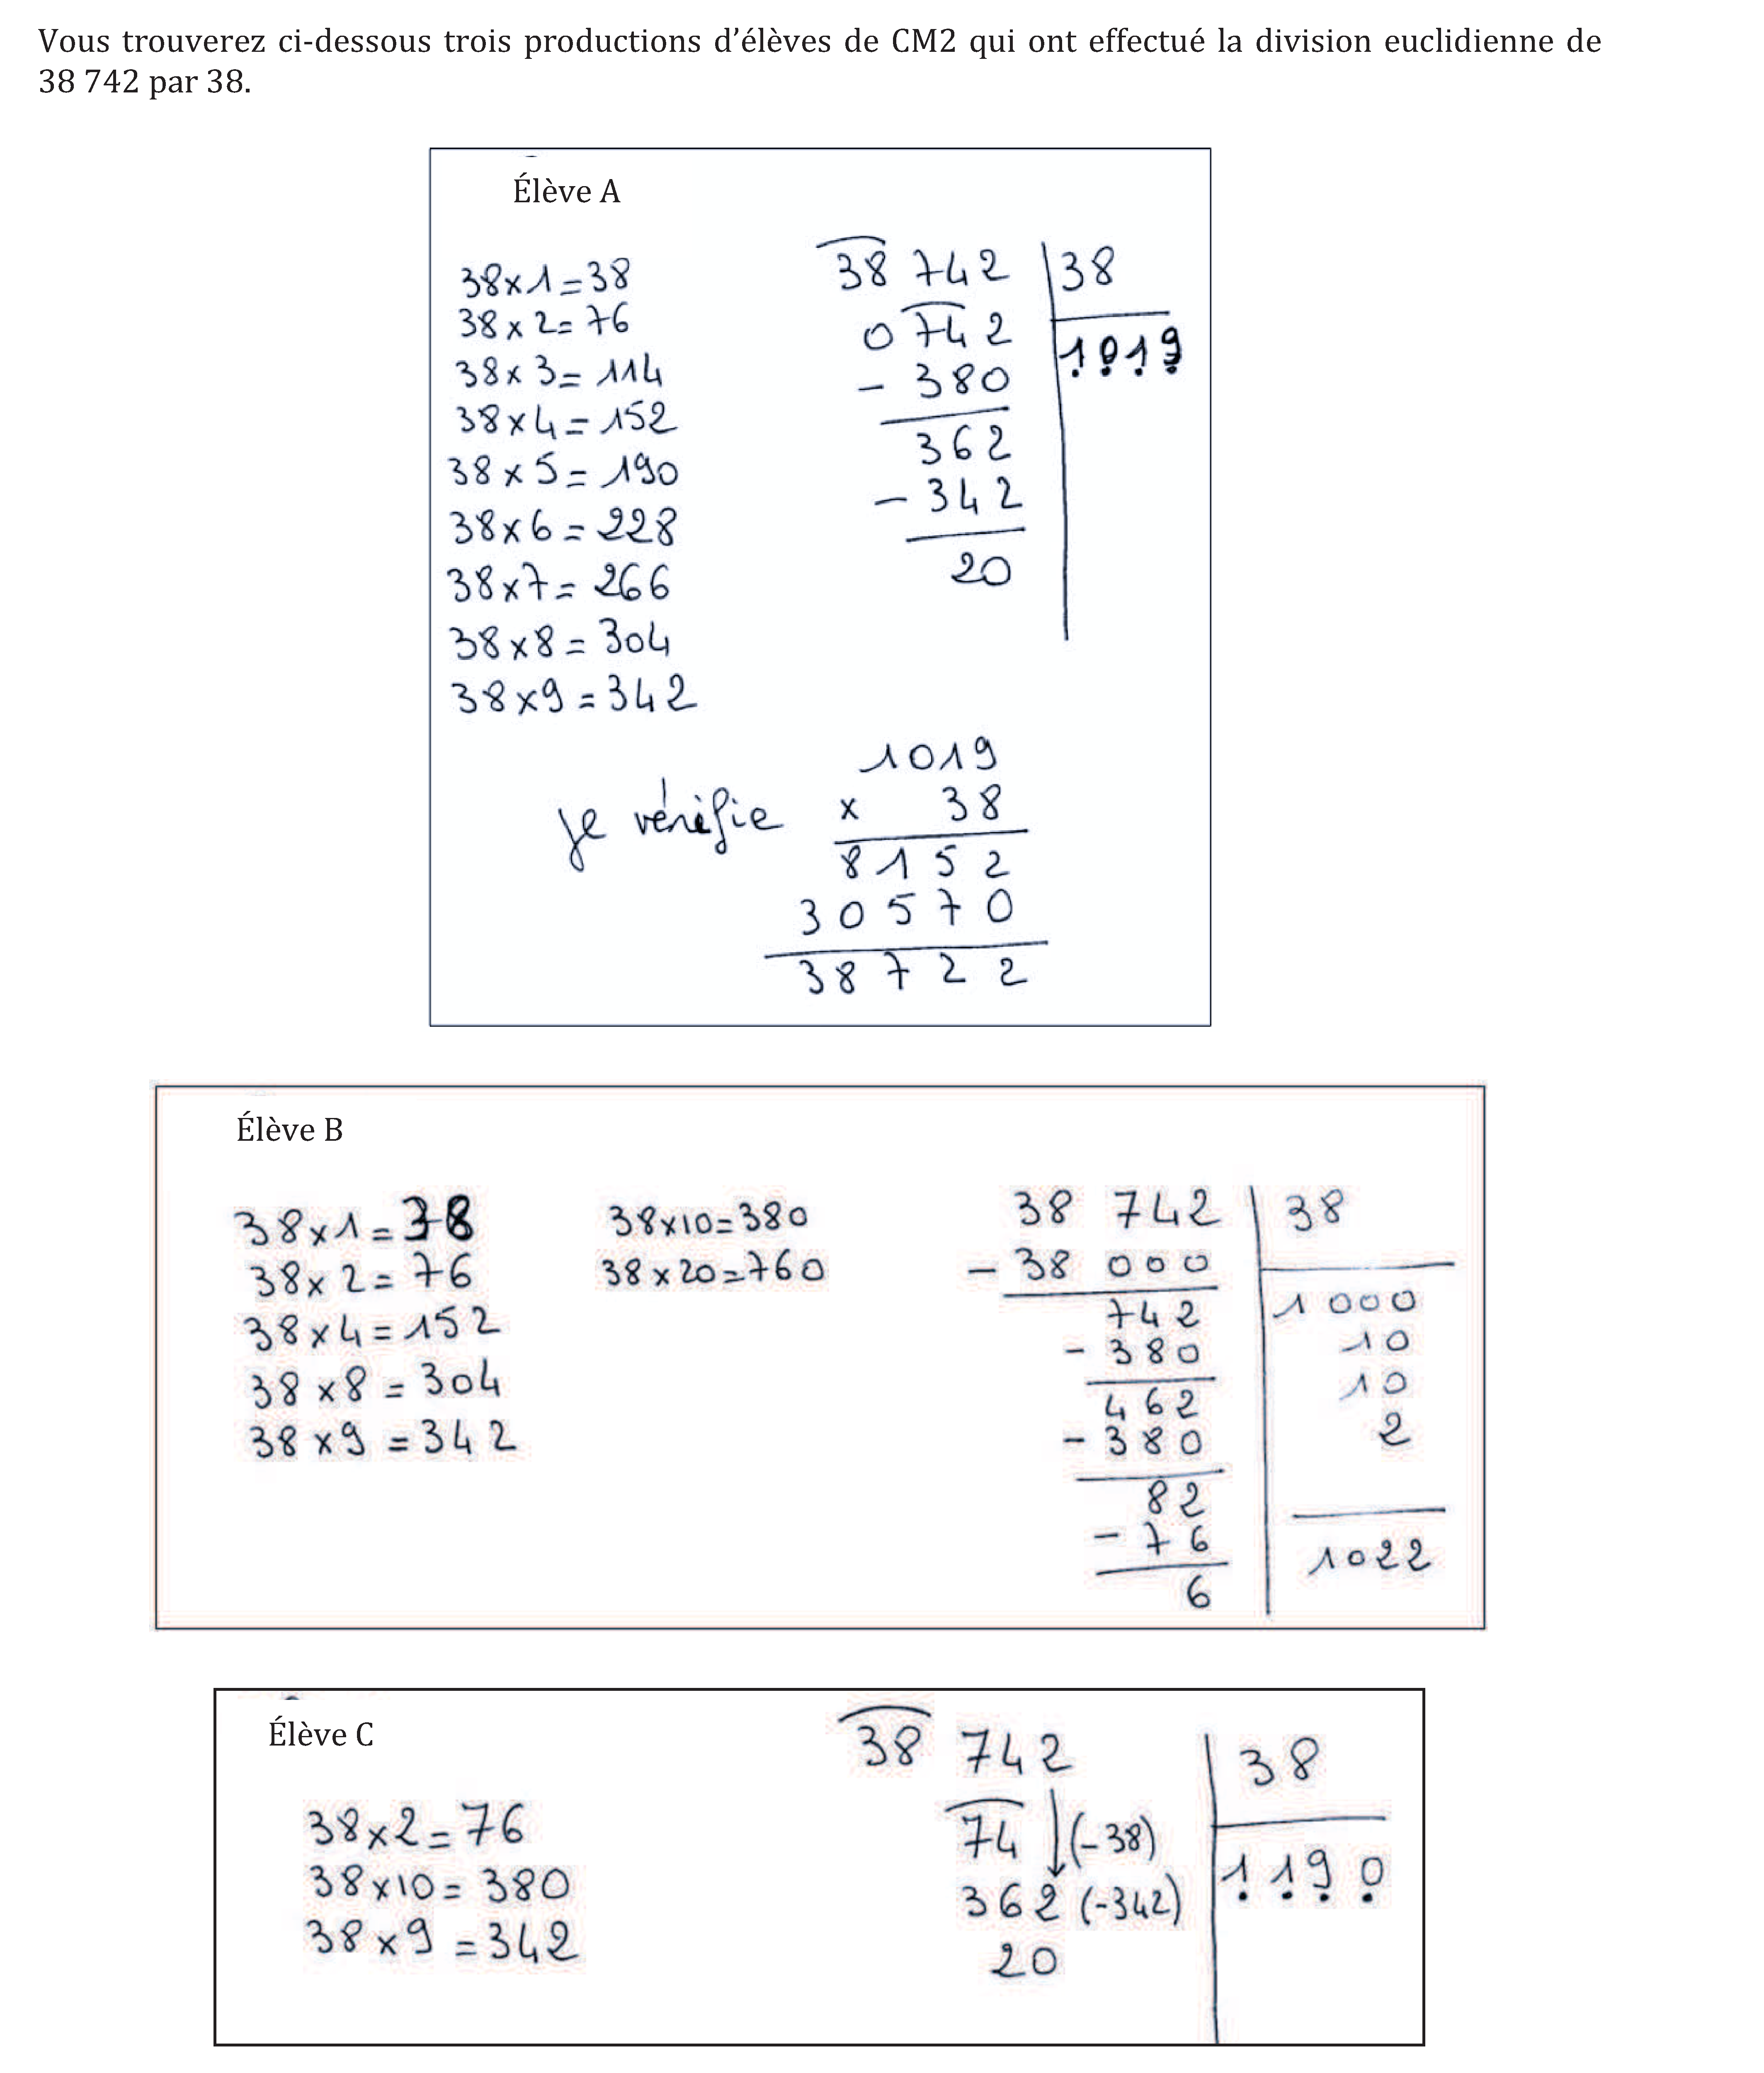 Vous trouverez ci-dessous trois productions d’élèves de CM2 qui ont effectué la division euclidienne de
38 742 par 38.
Élève A
38x1=38
38x2=76
38x3=114
38x4=152
38x5=190
38x6=228
38x7=266
38x8=304
38x9=342
38 742 38
0 742 1019
- 380
362
- 342
20
je vérifie
1019
x 38
8152
30570
38722
Élève B
38x1=38
38x2=76
38x4=152
38x8=304
38x9=342
38x10=380
38x20=760
38 742 38
- 38 000
742 1 000
- 380 10
462 10
- 380 2
82
- 76
6 1022
Élève C
38x2=76
38x10=380
38x9=342
38 742 38
74 (-38)
362 (-342) 1190
20